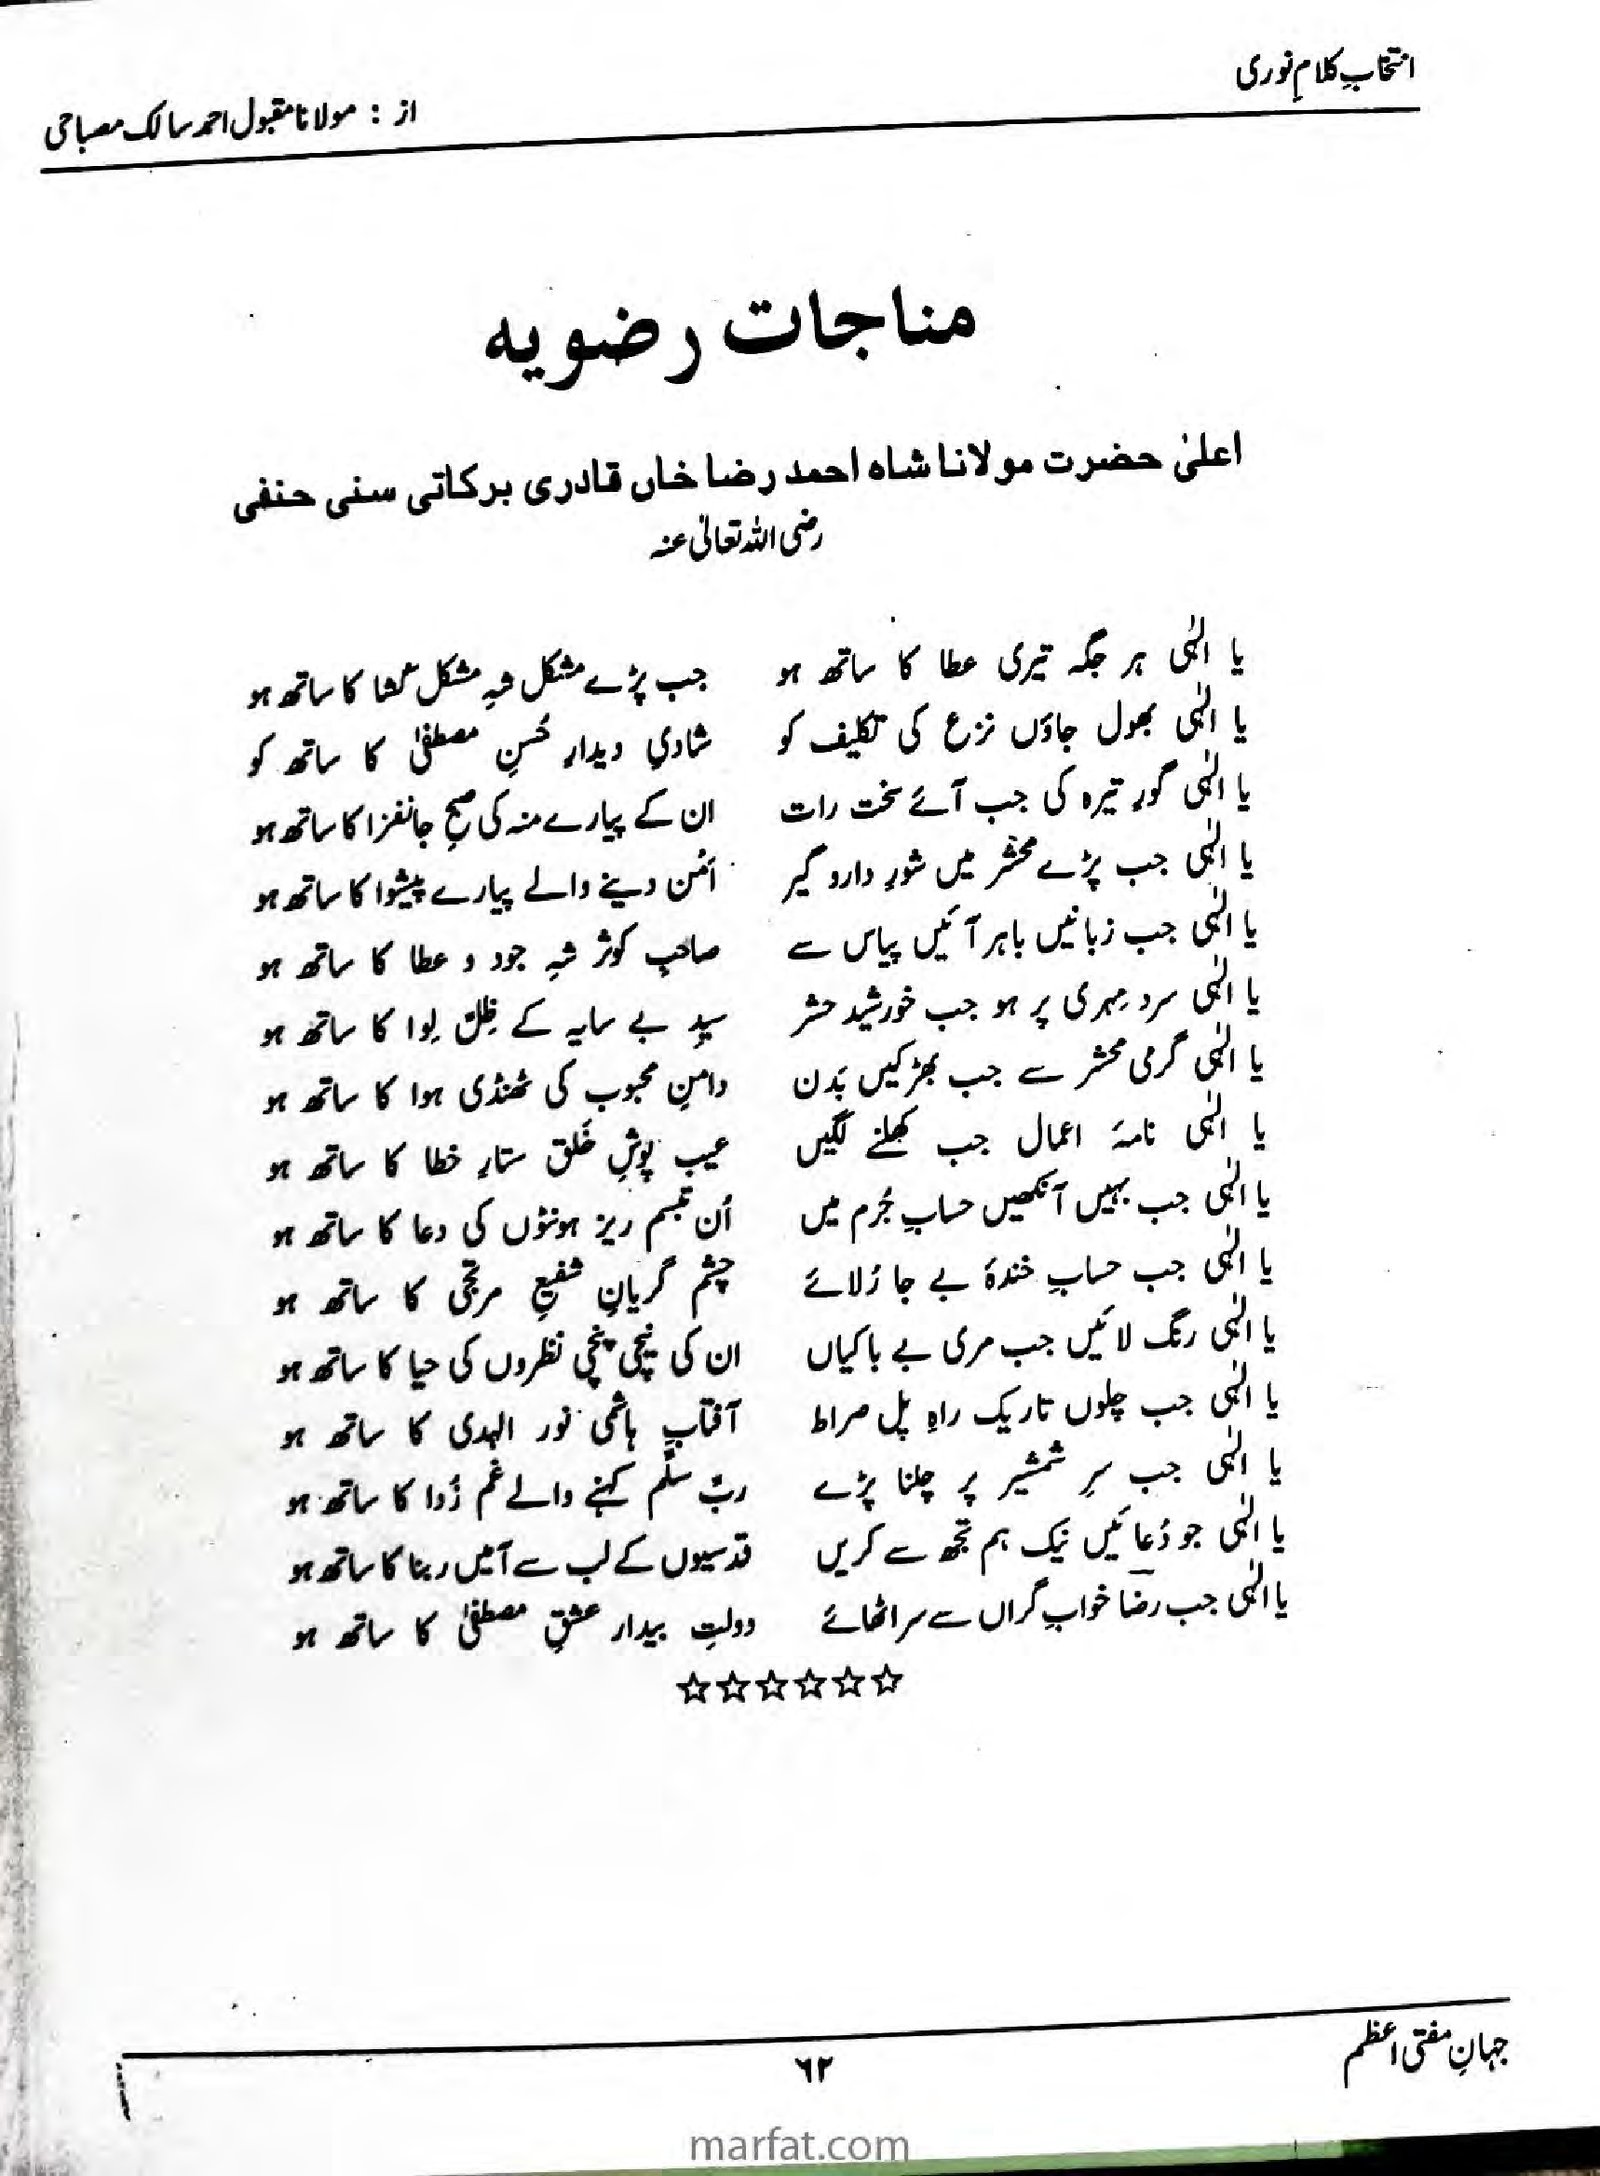 انتخابِ کلامِ نوری
از : مولانا مقبول احمد سالک مصباحی
مناجات رضویہ
اعلیٰ حضرت مولانا شاہ احمد رضا خاں قادری برکاتی سنی حنفی
رضی اللہ تعالیٰ عنہ
یا الٰہی ہر جگہ تیری عطا کا ساتھ ہو جب پڑے مشکل شہِ مشکل کشا کا ساتھ ہو
یا الٰہی بھول جاؤں نزع کی تکلیف کو شادیِ دیدارِ حُسنِ مصطفیٰ کا ساتھ کو
یا الٰہی گورِ تیرہ کی جب آئے سخت رات ان کے پیارے منہ کی صبحِ جانفزا کا ساتھ ہو
یا الٰہی جب پڑے محشر میں شورِ دارو گیر اَمن دینے والے پیارے پیشوا کا ساتھ ہو
یا الٰہی جب زبانیں باہر آئیں پیاس سے صاحبِ کوثر شہِ جود و عطا کا ساتھ ہو
یا الٰہی سرد مِہری پر ہو جب خورشیدِ حشر سیدِ بے سایہ کے ظِلِّ لِوا کا ساتھ ہو
یا الٰہی گرمی محشر سے جب بھڑکیں بَدن دامنِ محبوب کی ٹھنڈی ہوا کا ساتھ ہو
یا الٰہی نامۂ اعمال جب کھلنے لگیں عیب پوشِ خَلق ستارِ خطا کا ساتھ ہو
یا الٰہی جب بہیں آنکھیں حسابِ جُرم میں اُن تبسم ریز ہونٹوں کی دعا کا ساتھ ہو
یا الٰہی جب حسابِ خندۂ بے جا رُلائے چشمِ گریانِ شفیعِ مرتجٰی کا ساتھ ہو
یا الٰہی رنگ لائیں جب مری بے باکیاں ان کی نیچی نیچی نظروں کی حیا کا ساتھ ہو
یا الٰہی جب چلوں تاریک راہِ پل صراط آفتابِ ہاشمی نور الہدی کا ساتھ ہو
یا الٰہی جب سرِ شمشیر پر چلنا پڑے ربِّ سلِّم کہنے والے غم زُدا کا ساتھ ہو
یا الٰہی جو دُعائیں نیک ہم تجھ سے کریں قدسیوں کے لب سے آمیں ربنا کا ساتھ ہو
یا الٰہی جب رضا خوابِ گراں سے سر اٹھائے دولتِ بیدار عشقِ مصطفیٰ کا ساتھ ہو
☆☆☆☆☆☆
جہانِ مفتی اعظم
٦٢
marfat.com